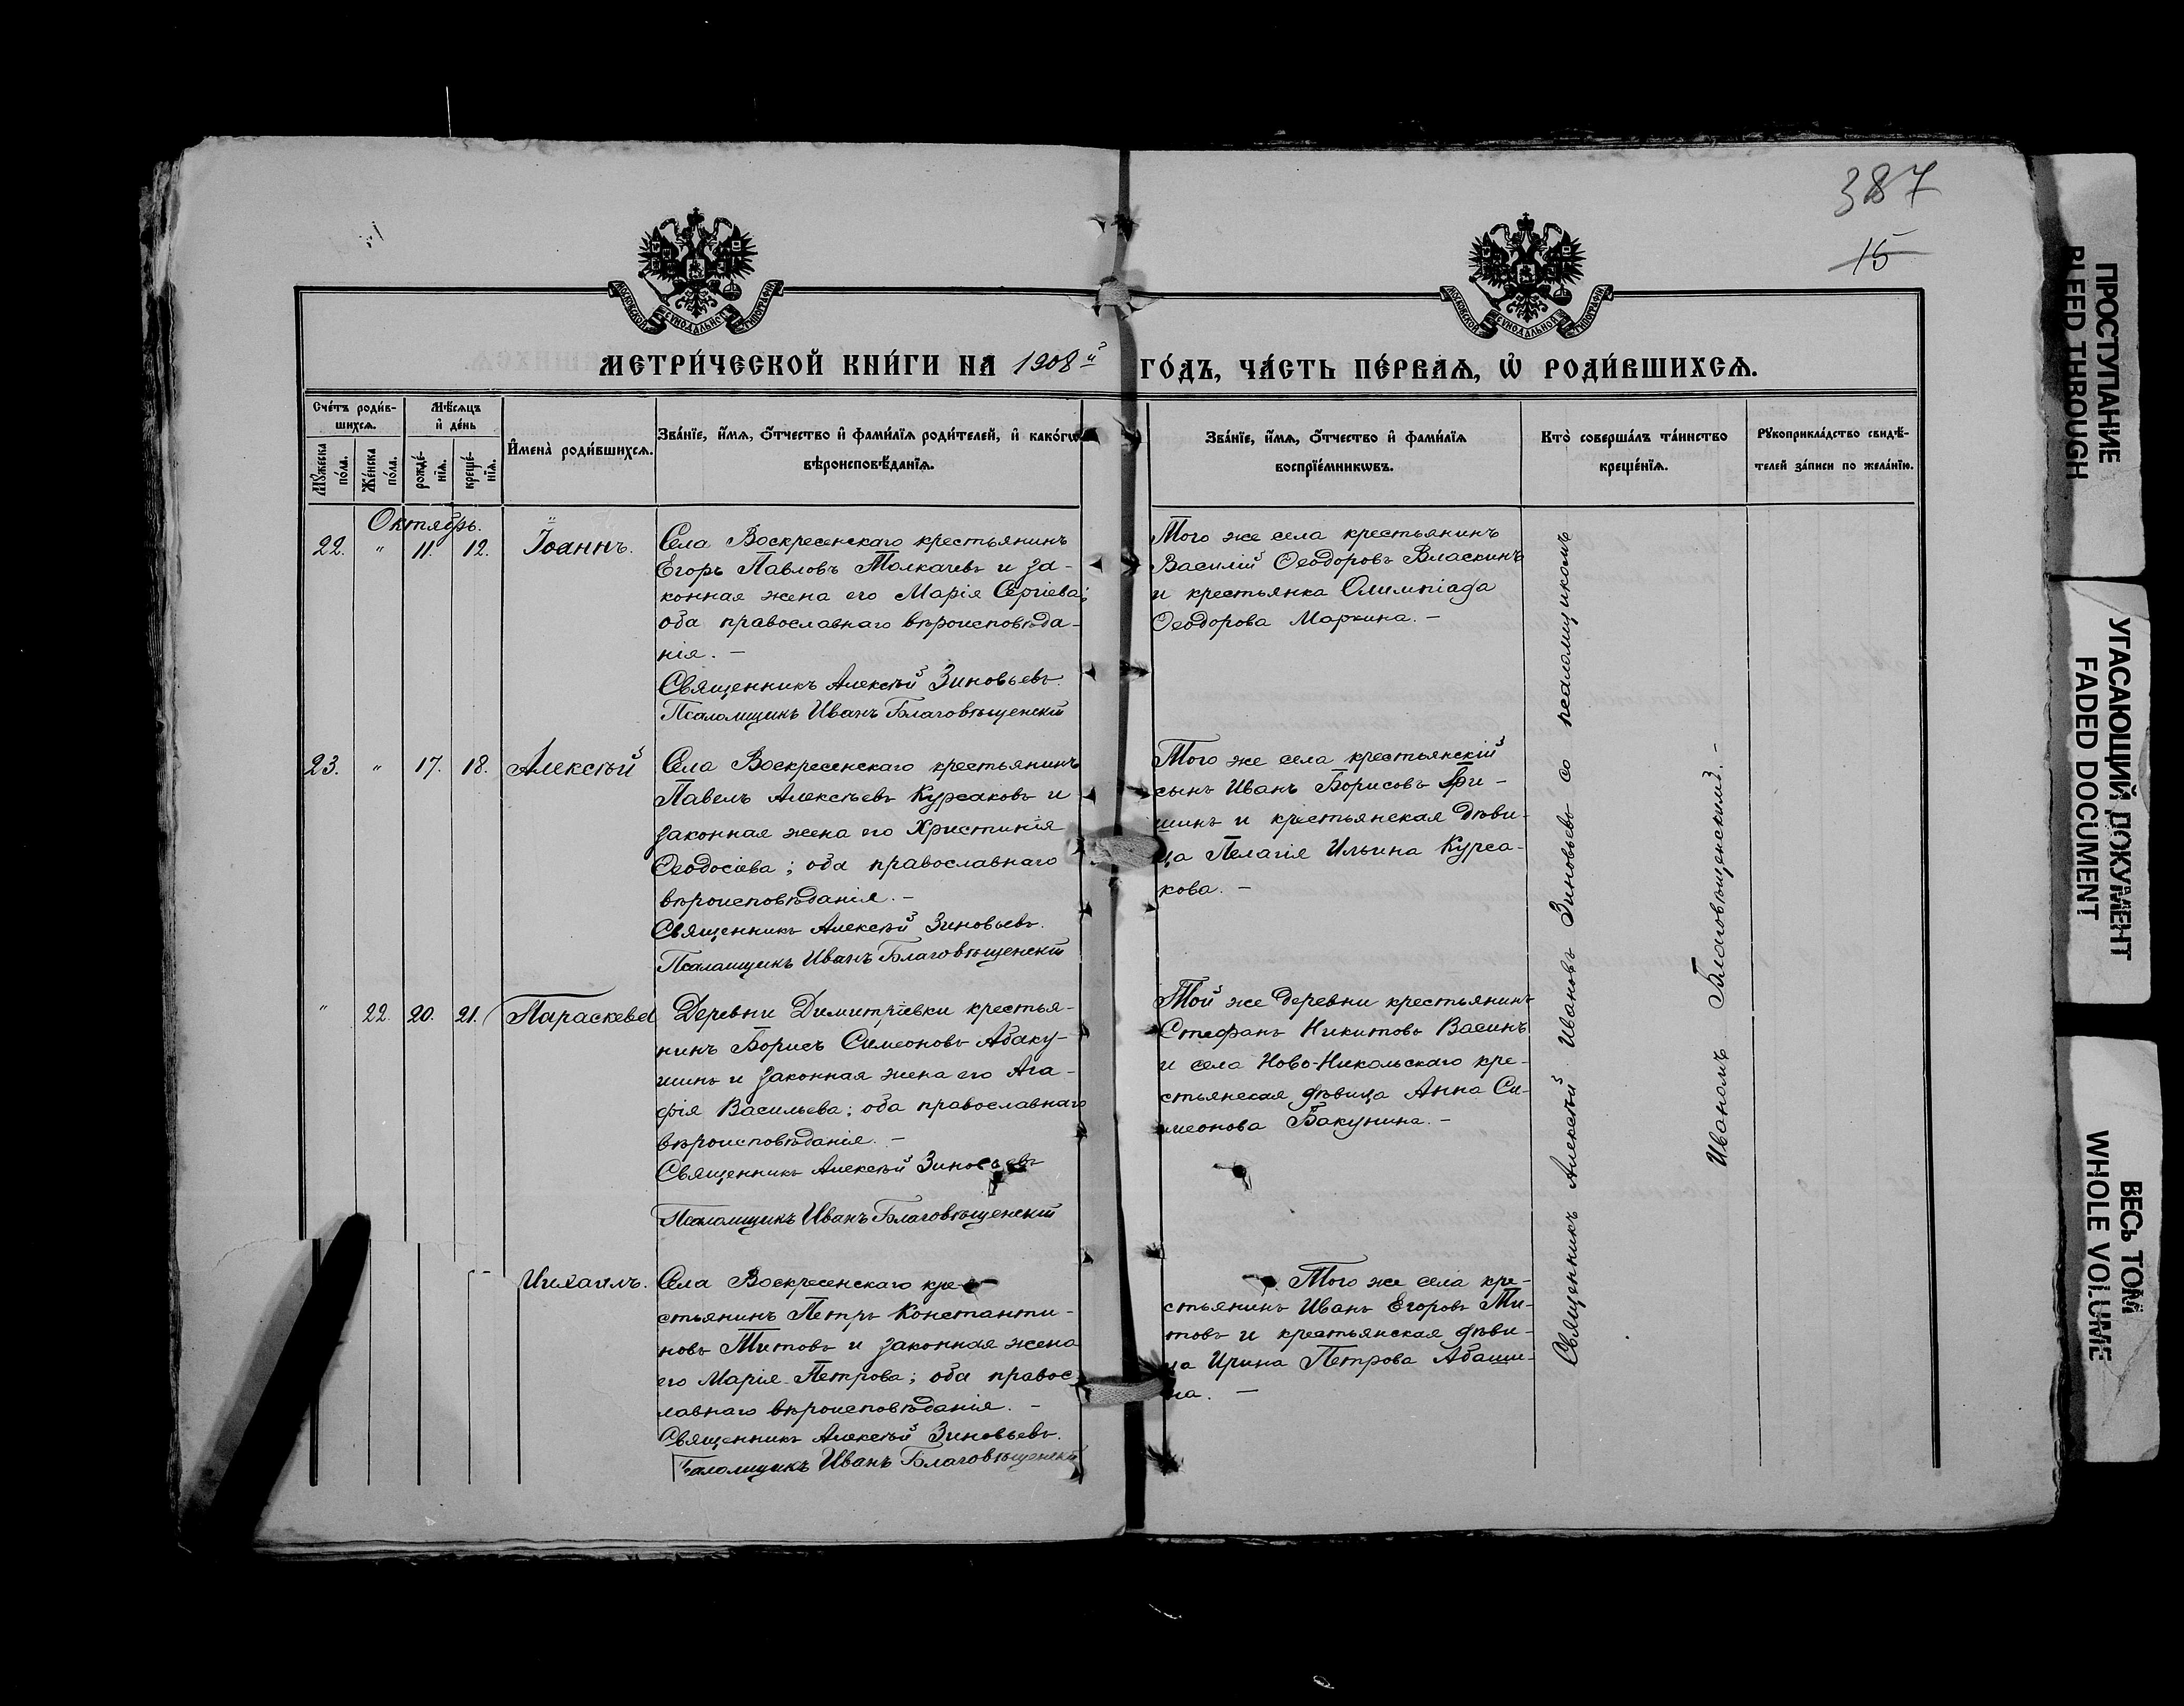 387
15
МОСКОВСКОЙ СѴНОДАЛЬНОЙ ТИПОГРАФІИ
МОСКОВСКОЙ СѴНОДАЛЬНОЙ ТИПОГРАФІИ
МЕТРИ́ЧЕСКОЙ КНИ́ГИ НА 1908й ГО́ДЪ, ЧА́СТЬ ПЕ́РВАѦ, Ѡ҆ РОДИ́ВШИХСѦ.
Сче́тъ роди́в-
шихсѧ.
Мѣ́сѧцъ
и҆ де́нь
Мꙋ́жеска
по́ла.
Же́нска
по́ла.
рожде́-
нїѧ.
креще́-
нїѧ.
И҆мена̀ роди́вшихсѧ.
Зва́нїе, и҆́мѧ, ѻ҆́тчество и҆ фами́лїѧ роди́телей, и҆ како́гѡ
вѣроисповѣ́данїѧ.
Зва́нїе, и҆́мѧ, ѻ҆́тчество и҆ фами́лїѧ
воспрїе́мникѡвъ.
Кто̀ соверша́лъ та́инство
креще́нїѧ.
Рꙋкоприкла́дство свидѣ́-
телей за́писи по жела́нїю.
Октябрь.
22. " 11. 12. Іоаннъ.
Села Воскресенскаго крестьянинъ
Егоръ Павловъ Толкачевъ и за-
конная жена его Марія Сергіева;
оба православнаго вѣроисповѣда-
нія. –
Священникъ Алексѣй Зиновьевъ.
Псаломщикъ Иванъ Благовѣщенскій
Того же села крестьянинъ
Василій Ѳеодоровъ Власкинъ
и крестьянка Олимпіада
Ѳеодорова Маркина. –
23. " 17. 18. Алексѣй
Села Воскресенскаго крестьянинъ
Павелъ Алексѣевъ Курсаковъ и
законная жена его Христинія
Ѳеодосіева; оба православнаго
вѣроисповѣданія. –
Священникъ Алексѣй Зиновьевъ.
Псаломщикъ Иванъ Благовѣщенскій
Того же села крестьянскій
сынъ Иванъ Борисовъ
шинъ и крестьянская дѣви-
ца Пелагія Ильина Курса-
кова. –
" 22. 20. 21. Параскева
Деревни Димитріевки крестья-
нинъ Борисъ Симеоновъ Абаку-
шинъ и законная жена его Ага-
фія Васильева; оба православнаго
вѣроисповѣданія. –
Священникъ Алексѣй Зиновьевъ
Псаломщикъ Иванъ Благовѣщенскій
Той же деревни крестьянинъ
Стефанъ Никитовъ Васинъ
и села Ново-Никольскаго кре-
стьянская дѣвица Анна Си-
меонова Бакунина. –
Михаилъ.
Села Воскресенскаго кре-
стьянинъ Петръ Константи-
новъ Титовъ и законная жена
его Марія Петрова; оба правос-
лавнаго вѣроисповѣданія. –
Священникъ Алексѣй Зиновьевъ.
Псаломщикъ Иванъ Благовѣщенскій
Того же села кре-
стьянинъ Иванъ Егоровъ Ти-
товъ и крестьянская дѣви-
ца Ирина Петрова Абаши-
на. –
Священникъ Алексѣй Ивановъ Зиновьевъ со псаломщикомъ
Иваномъ Благовѣщенскимъ. –
ПРОСТУПАНИЕ
BLEED THROUGH
УГАСАЮЩИЙ ДОКУМЕНТ
FADED DOCUMENT
ВЕСЬ ТОМ
WHOLE VOLUME